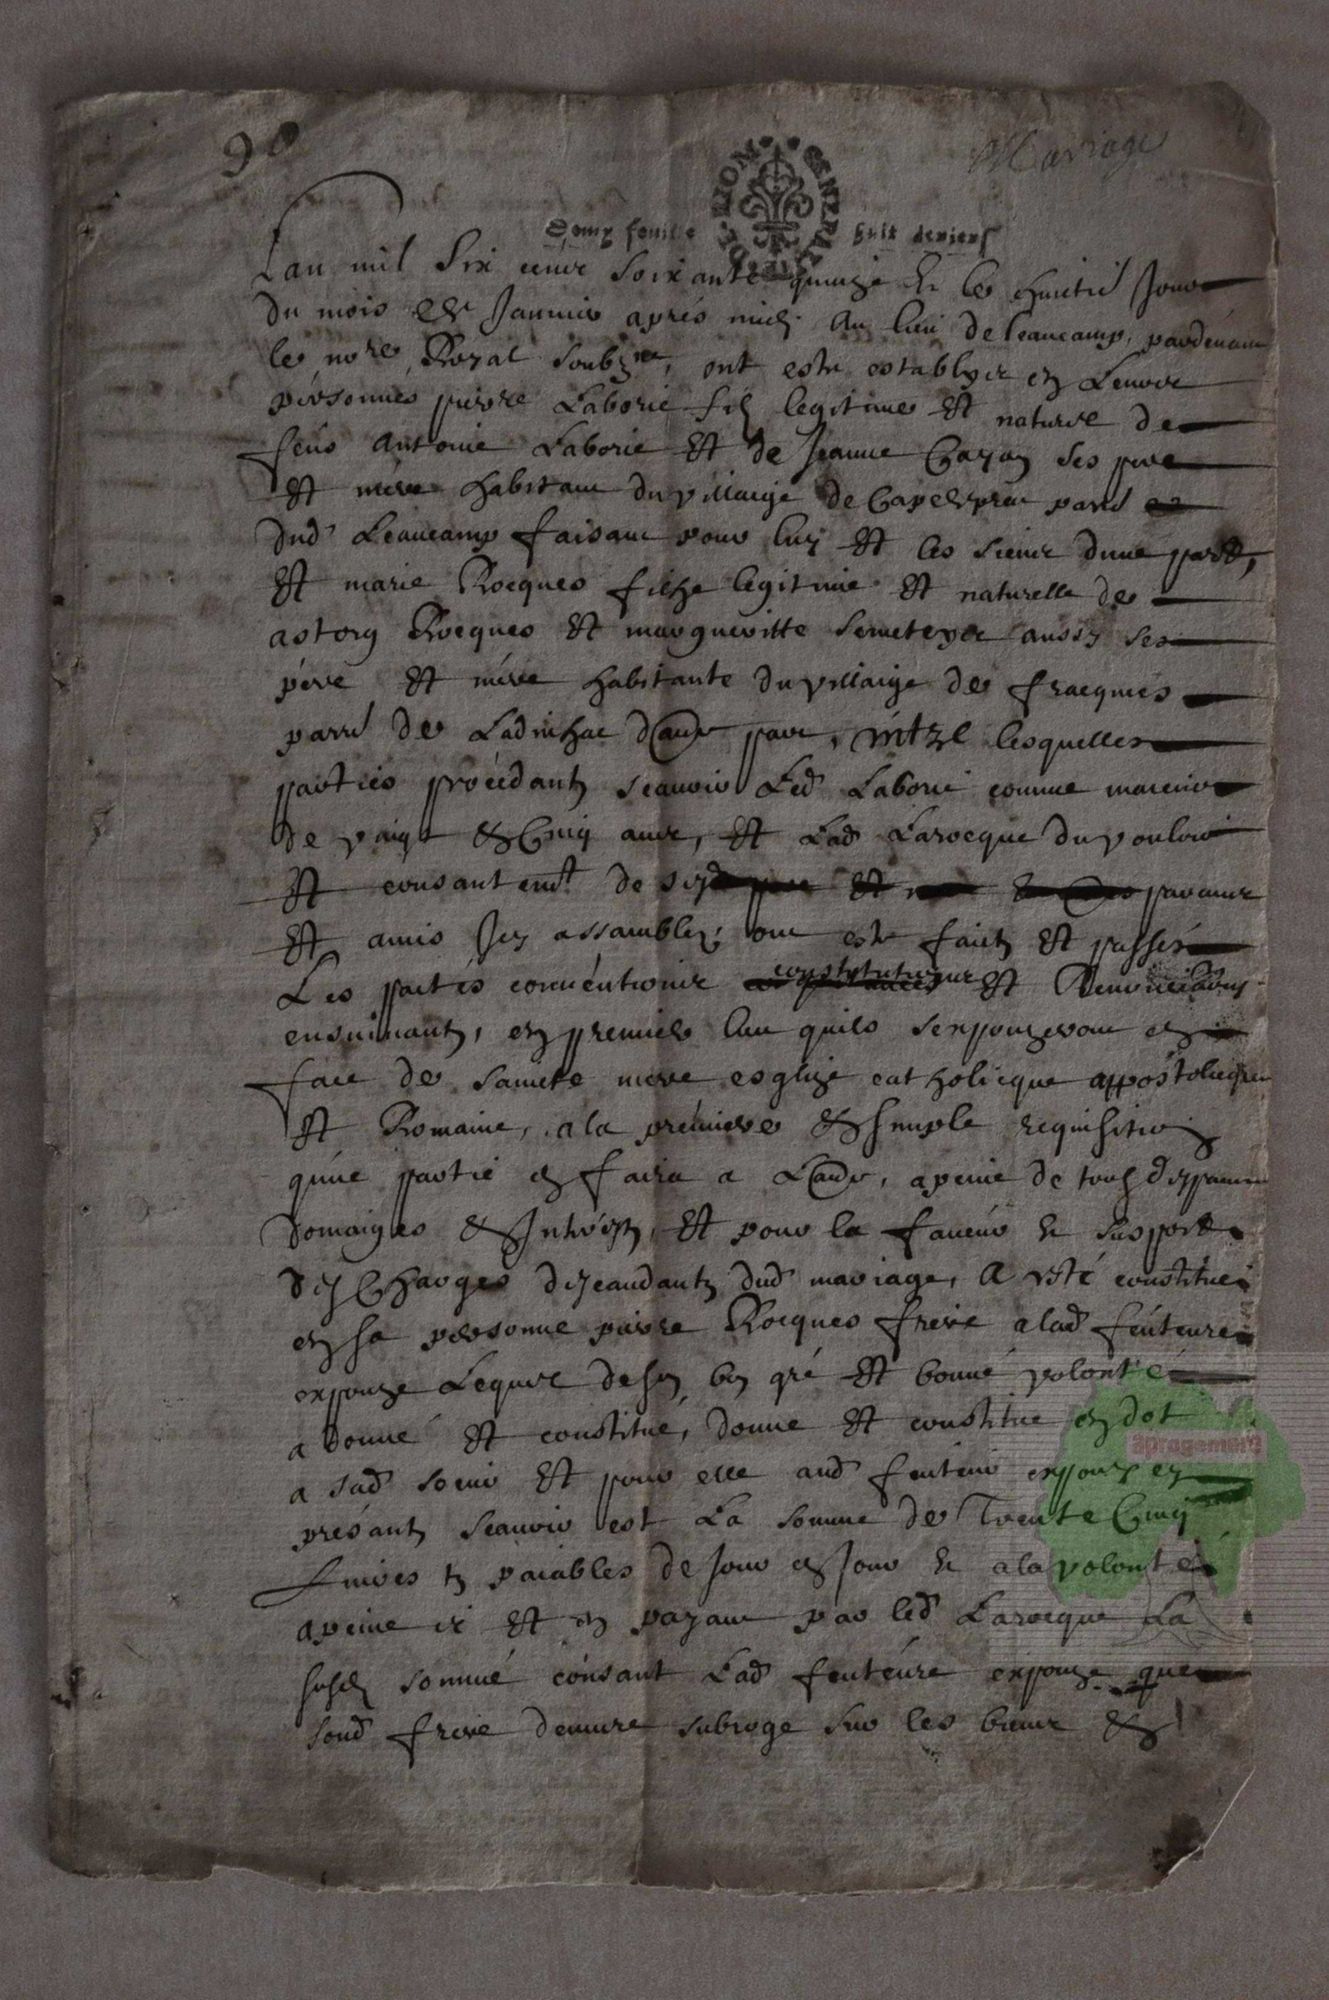 90
Mariage
Demy feuille huit deniers
GENERALITE DE RIOM
Lan mil six cens soixante quinze & le huitie Jour
du mois de Janvier aprés midi au lieu de Leaucamp, pardevant
le nore Royal soubzne, ont este establys en Leurs
pérsonnes pierre Laborie filz legitime et naturel de
feus Antoine Laborie et de Jeanne Cayon ses pere
et mere habitant du villaige de parr
dud Leaucamp faisant pour luy et les siens dune part,
et marie Rocques filhe legitime et naturelle de
astorg Rocques et margueritte aussy ses
pére et mére habitante du villaige de fracques
parr de Ladinhac dautre part, lesquelles
parties procédants scavoir Led Laborie comme
de vaigt & Cinq ans, et Lad Larocque du vouloir
et consantemt de parans
et amis Jcy assamblez ont este faicts et passés
Les pactes convéntions constitutions et Renonciations
ensuivants, en premier lieu quils sexpouzeront en
face de saincte mere esglize catholicque appostolicque
et Romaine, a la premiere & simple requisition
qune partie en faira a Lautre, a peine de tous despans
domaiges & Intérestz, et pour la faveur & support
des Charges dud mariage, a esté constitué
en sa personne pierre Rocques frere a lad feuteure
expouze Lequel de son bon gré et bonne volonté
a donné et constitué, donne et constitue en dot
a sad soeur et pour elle aud feuteur expoux
présants scavoir est La somme de Trente Cinq
Livres paiables de Jour en Jour & a la volonté
a peine et en payant par led Larocque La
susd sommé consant Lad feuteure expouze que
sond frere demure subrogé sur les biens &
apragemere